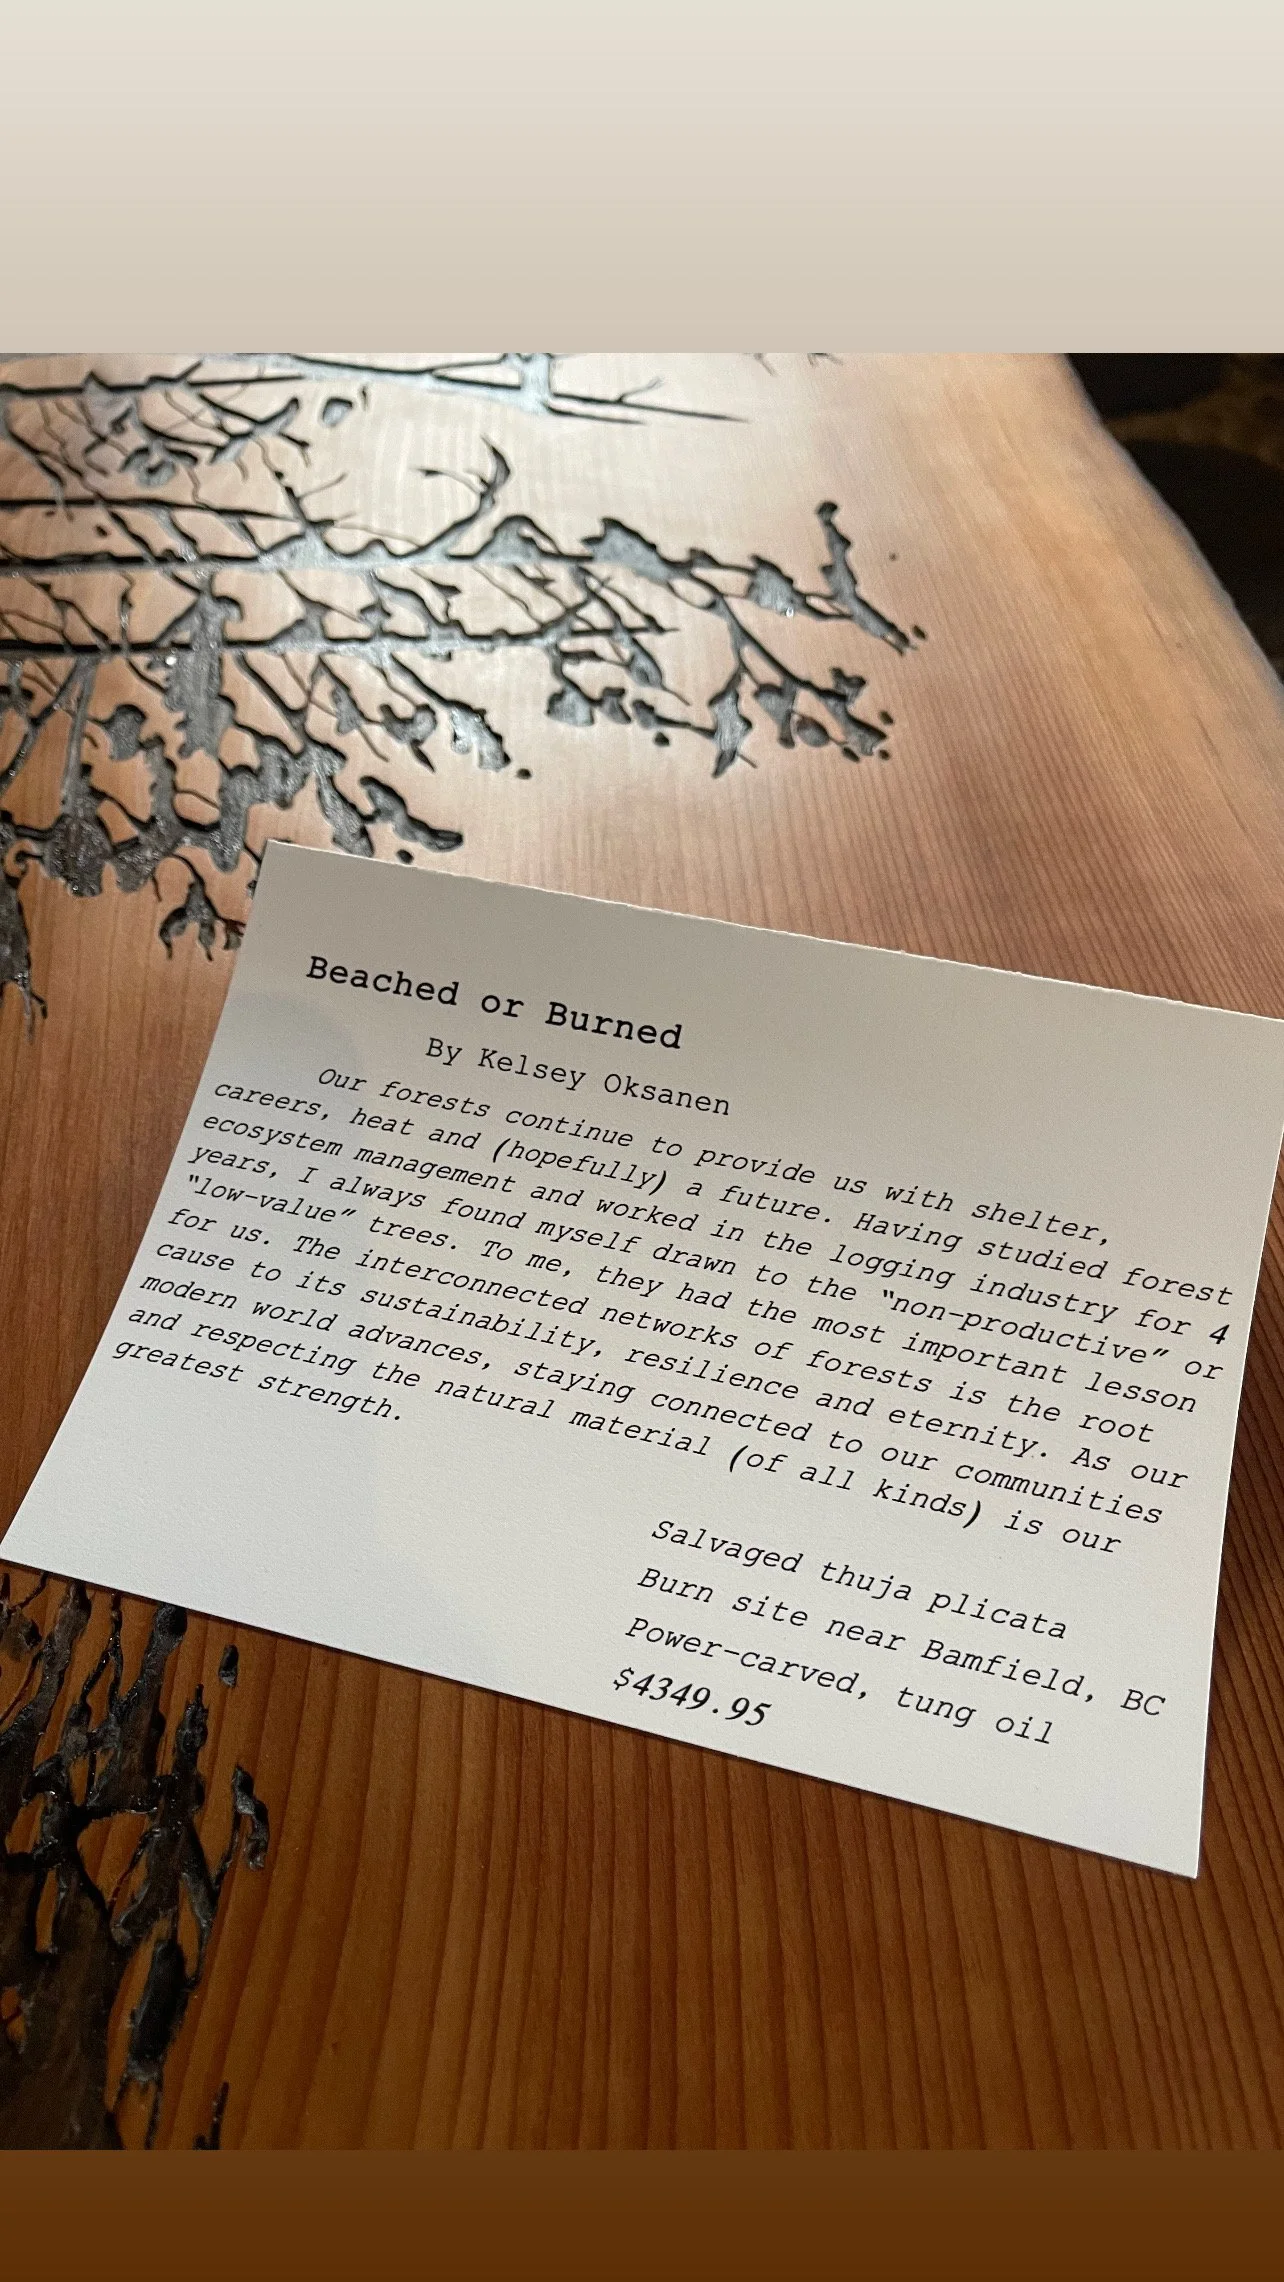 Beached or Burned
By Kelsey Oksanen
Our forests continue to provide us with shelter,
careers, heat and (hopefully) a future. Having studied forest
ecosystem management and worked in the logging industry for 4
years, I always found myself drawn to the "non-productive" or
"low-value" trees. To me, they had the most important lesson
for us. The interconnected networks of forests is the root
cause to its sustainability, resilience and eternity. As our
modern world advances, staying connected to our communities
and respecting the natural material (of all kinds) is our
greatest strength.
Salvaged thuja plicata
Burn site near Bamfield, BC
Power-carved, tung oil
$4349.95